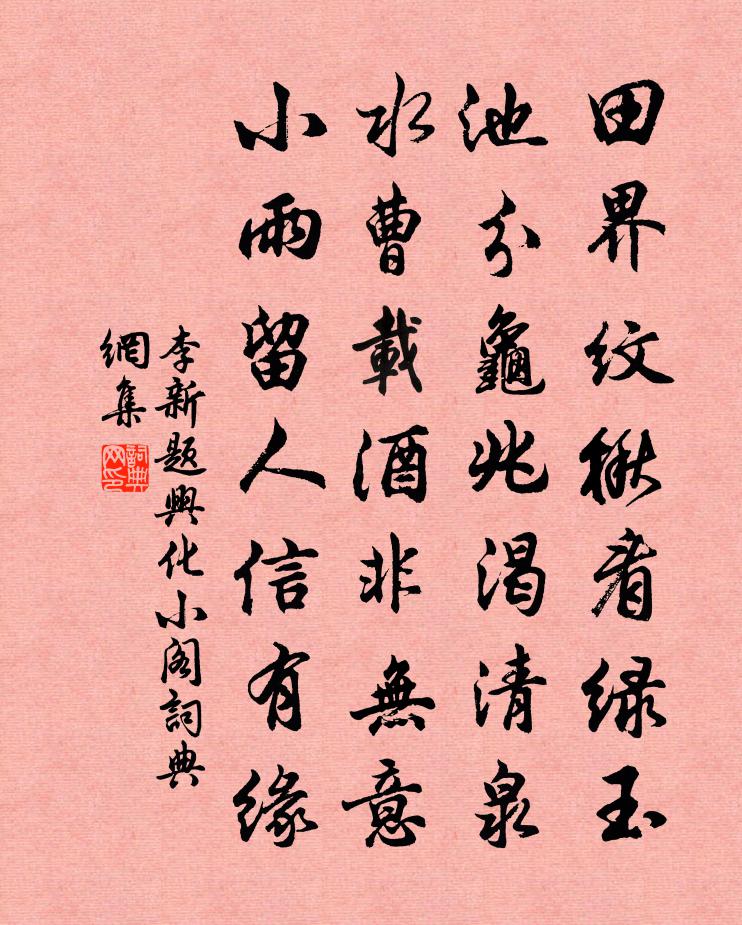 田界纹楸看绿玉
池分龜兆渴清泉
水曹載酒非無意
小雨留人信有緣
李新題興化小阁詞典
網集
詞典網印